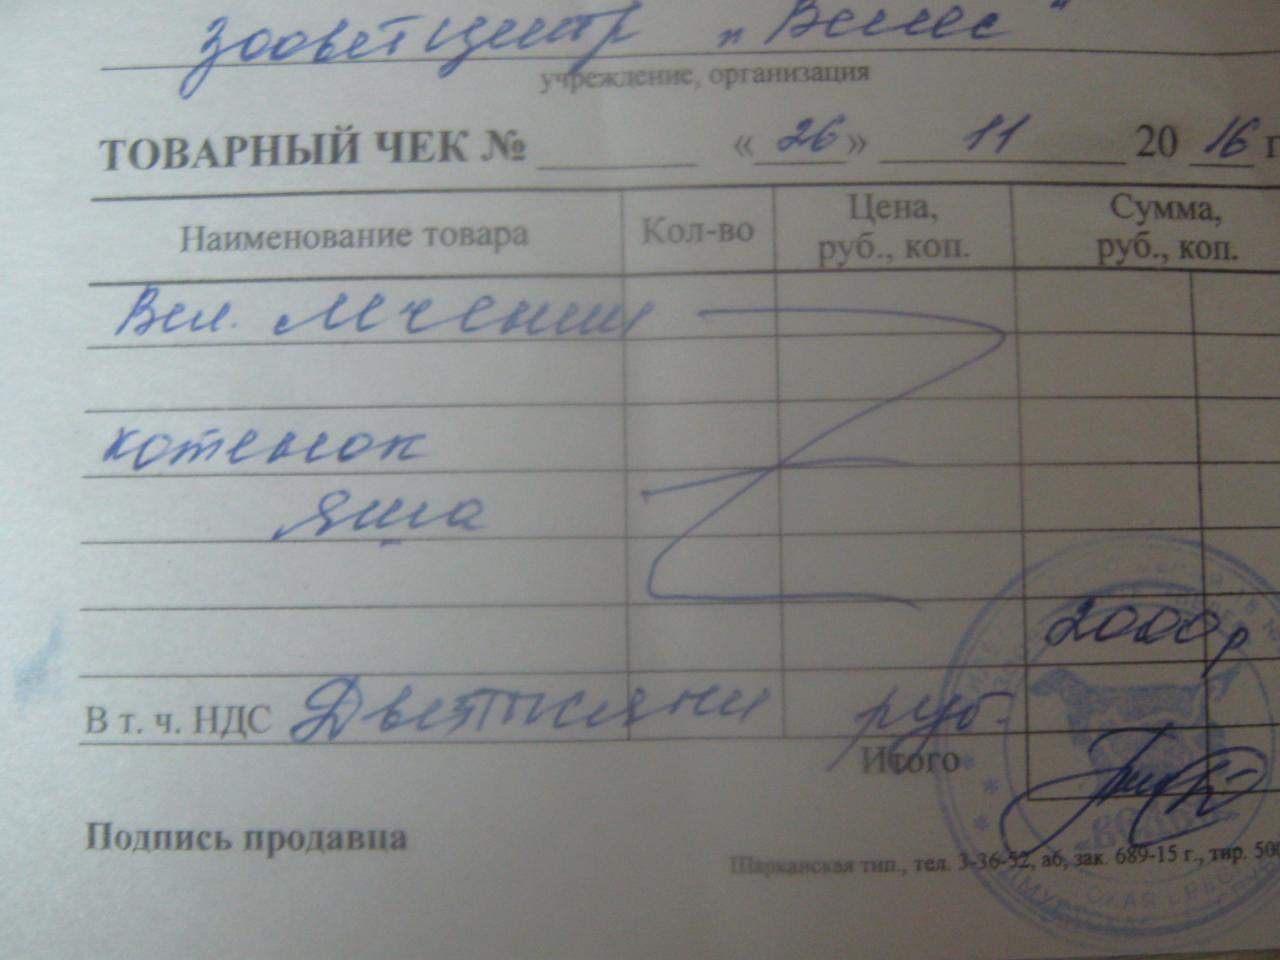 Зооветцентр „Велес"
учреждение, организация
ТОВАРНЫЙ ЧЕК № «26» 11 20 16 г
Наименование товара Кол-во Цена, руб., коп. Сумма, руб., коп.
лечении
котенок
Яша
2000р
В т. ч. НДС Две тысячи руб.
Итого
Подпись продавца
Шарканская тип., тел. 3-36-52, аб, зак. 689-15 г., тир. 500